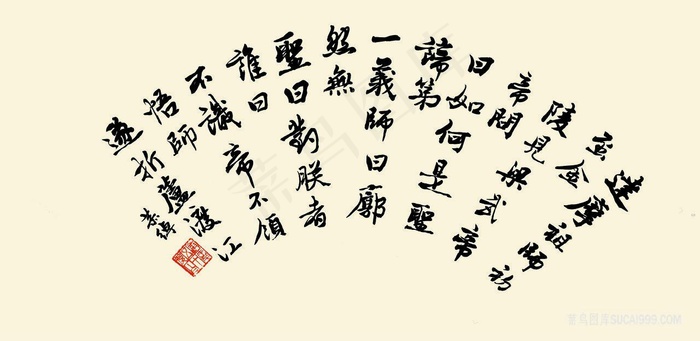 達摩祖師初
至金
陵見梁武帝
帝問
曰如何是聖
諦第
一義師曰廓
然無
聖曰對朕者
誰曰
不識帝不領
悟師
遂折蘆渡江
菜鸟图库SUCAI999.COM